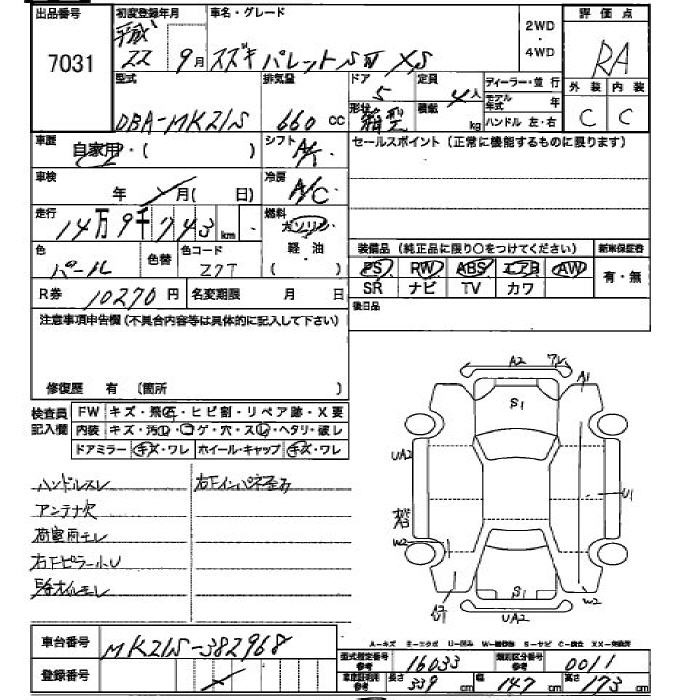 出品番号 初度登録年月 車名・グレード 2WD・4WD 評価点
7031 平成22 9月 スズキ パレット SW XS RA
型式 排気量 ドア 定員 ディーラー・並行 外装 内装
DBA-MK21S 660 cc 5 4人 モデル年式 年 C C
形状 箱型 積載 kg ハンドル 左・右
車歴 自家用・( ) シフト セールスポイント (正常に機能するものに限ります)
車検 年 月( 日) 冷房 A/C
走行 14万9千743 km 燃料 ガソリン
軽・油
( )
色 パール 色替 色コード Z7T
装備品 (純正品に限り○をつけてください) 新車保証書
PS RW ABS エアB AW 有・無
SR ナビ TV カワ
R券 10270 円 名変期限 月 日 後日品
注意事項申告欄 (不具合内容等は具体的に記入して下さい)
修復歴 有 (箇所 )
検査員記入欄 FW キズ・飛石・ヒビ割・リペア跡・X要
内装 キズ・汚れ・コゲ・穴・スレ・ヘタリ・破レ
ドアミラー キズ・ワレ ホイール・キャップ キズ・ワレ
ハンドルスレ 右下インパネ歪み
アンテナ欠
荷室雨モレ
右Fピラー小U
A2 ワレ
A1
S1
UA2
U1
A3
W2
S1
A2
U1
UA2
W2
車台番号 MK21S-382968
登録番号
A-キズ E-エクボ U-凹み
型式指定番号 参考 16033 類別区分番号 参考 0011
車庫証明用 参考 長さ 339 cm 幅 147 cm 高さ 173 cm